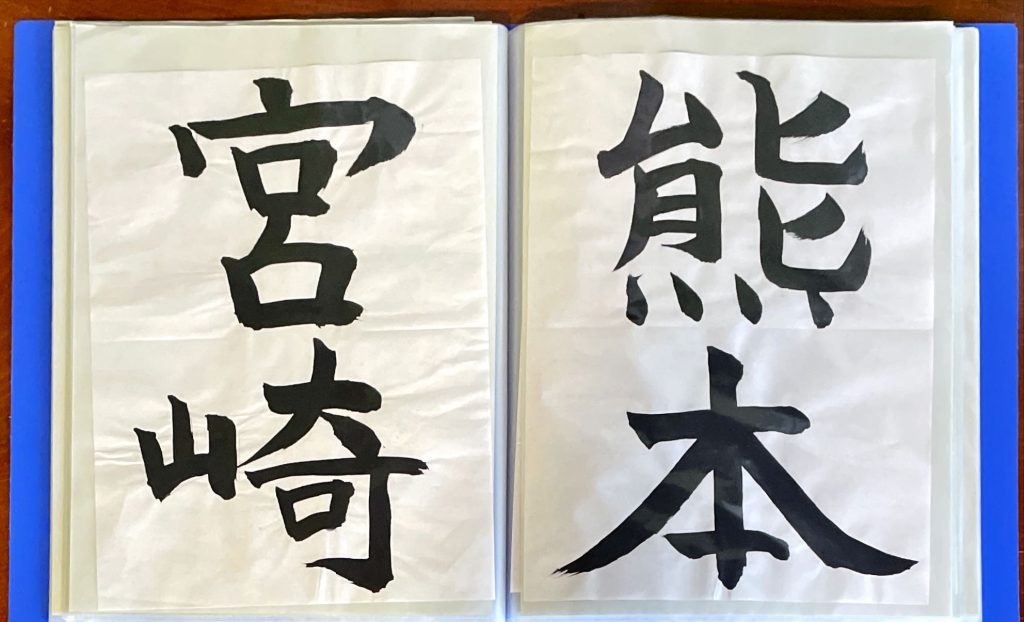 熊本
宮崎